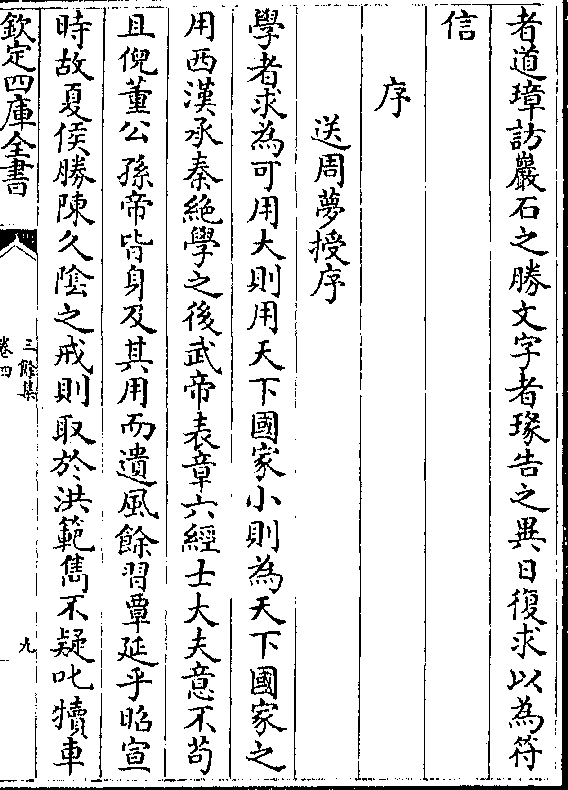 者道璋訪巖石之勝文字者琭告之異日復求以為符
信
序
送周夢授序
學者求為可用大則用天下國家小則為天下國家之
用西漢承秦絶學之後武帝表章六經士大夫意不苟
且倪董公孫帝皆身及其用而遺風餘習覃延乎昭宣
時故夏侯勝陳久陰之戒則取於洪範雋不疑叱犢車
欽定四庫全書
三餘集
卷四
九